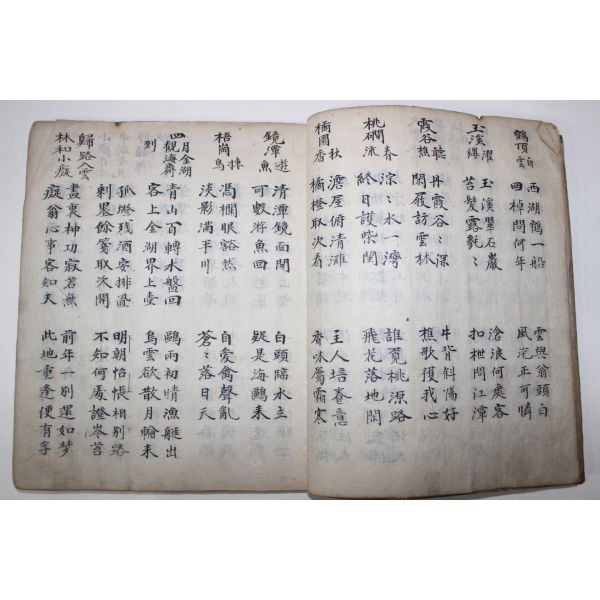 鶴頂白雲
西湖鶴一船 雲與翁頭白
回棹問何年 風汔正可憐
玉溪濯纓
玉溪犖石巖 滄浪何處客
苔髮露毿〻 扣枻問江潭
霞谷聽樵
丹霞谷〻深 牛背斜陽好
閑屐訪雲林 樵歌獲我心
桃磵春流
淙〻水一灣 誰覓桃源路
終日護柴關 飛花落地閒
橘園秋香
澹屋俯清灘 主人培養意
橘橙取次看 香味屬霜寒
鏡潭遊魚
清潭鏡面開 白頭臨水立
可數游魚回 疑是海鷗來
梧崗捿鳥
憑欄眼豁然 自愛禽聲亂
淡影滿平川 蒼〻落日天
四月金湖觀海齋到
青山百轉水盤回 鷗雨初晴漁艇出
客上金湖界上臺 烏雲欲散月輪來
孤燈殘酒安排醞 明朝怊悵相別路
剩累餘箋取次開 不知何處證岑苔
歸路入雲林和小癡
盡喪神功寂若無 前年一別還如夢
癡翁心事客知天 此地重逢便有孚